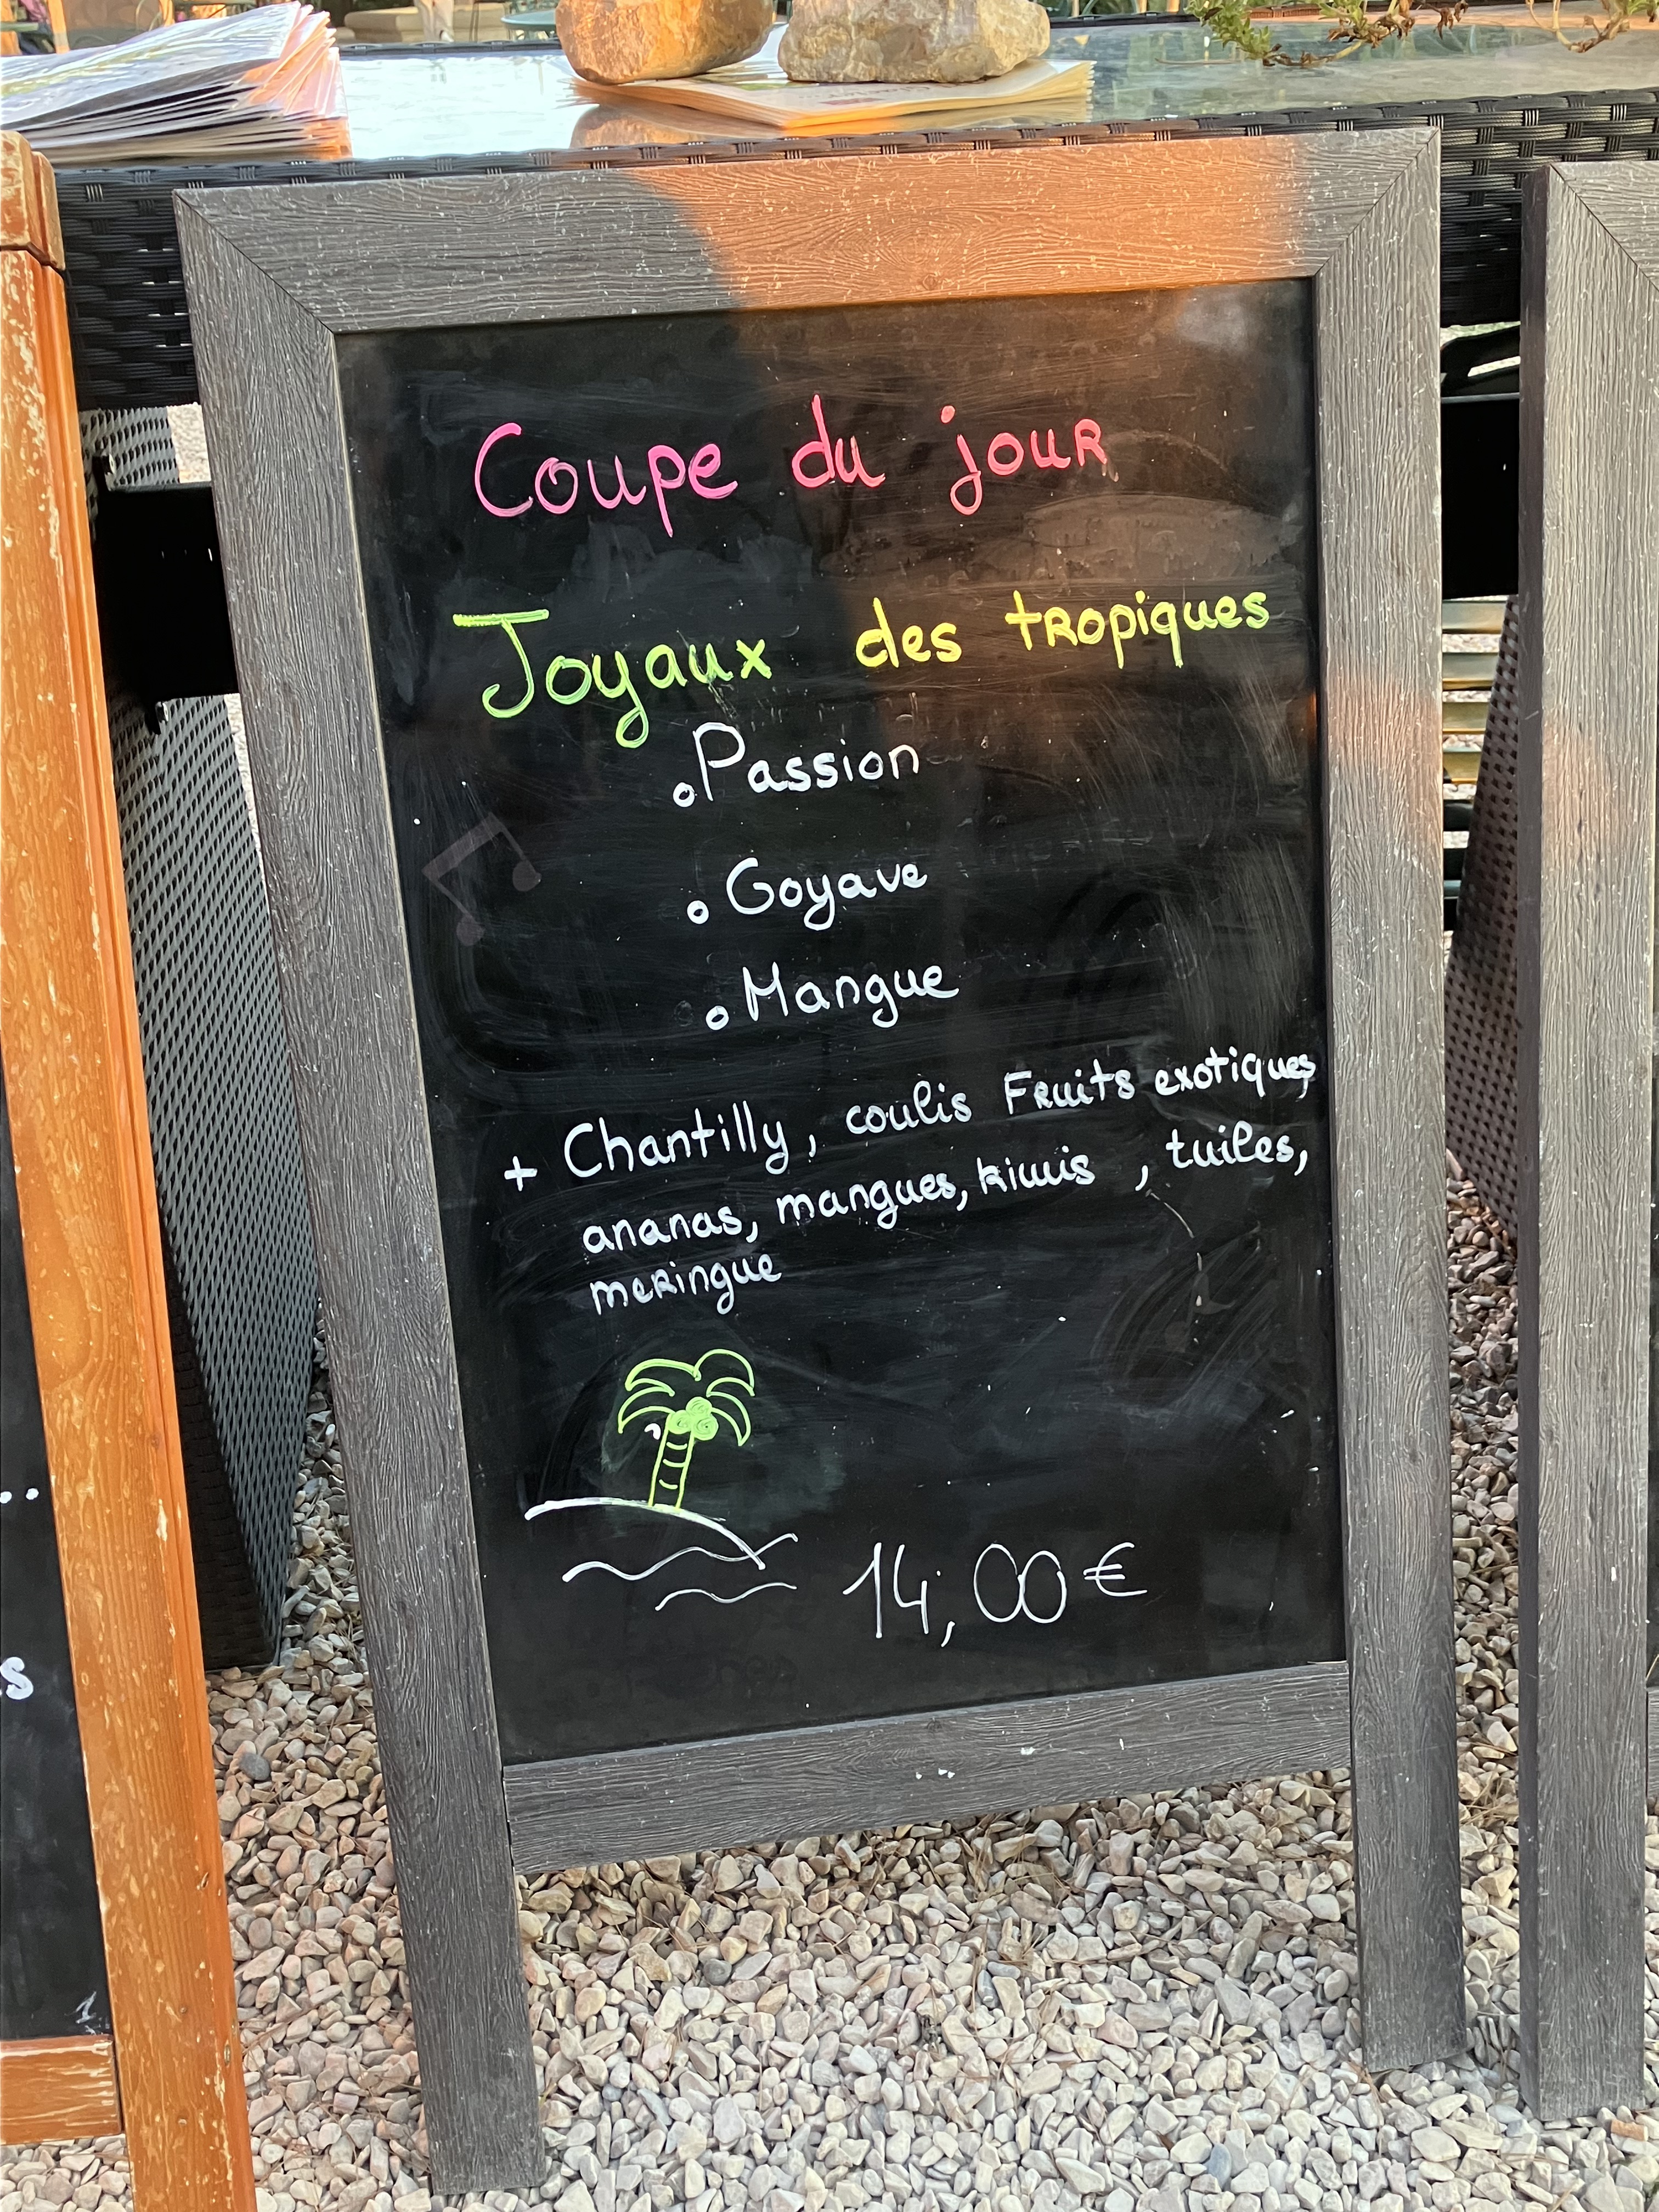 Coupe du jour
Joyaux des tropiques
Passion
Goyave
Mangue
+ Chantilly, coulis Fruits exotiques,
ananas, mangues, kiwis , tuiles,
meringue
14,00€
s